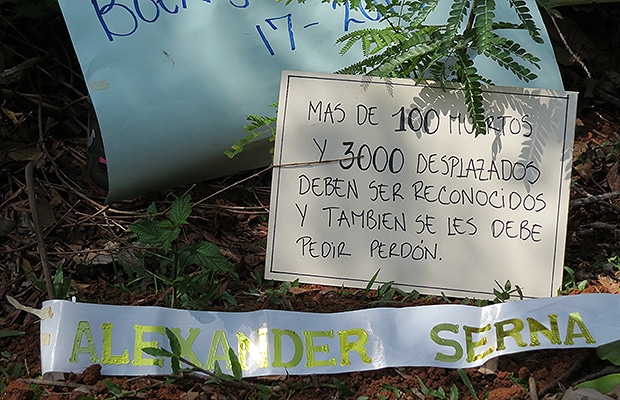 17-20
MAS DE 100 MUERTOS
Y 3000 DESPLAZADOS
DEBEN SER RECONOCIDOS
Y TAMBIEN SE LES DEBE
PEDIR PERDÓN.
ALEXANDER SERNA